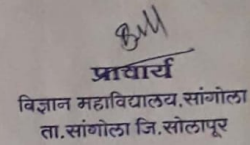 प्राचार्य
विज्ञान महाविद्यालय,सांगोला
ता.सांगोला जि.सोलापूर